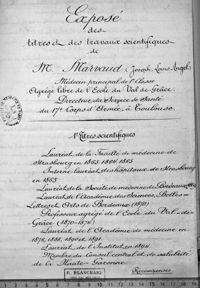 Exposé
des
titres et des travaux scientifiques
de
Mr Marvaud (Joseph Louis Angel)
Médecin principal de 1e Classe
Agrégé libre de l'Ecole du Val de Grâce
Directeur du Service de Santé
du 17e Corps d'Armée, à Toulouse
1° Titres scientifiques
Lauréat de la Faculté de médecine de
Strasbourg en 1863 1864 1865
Interne lauréat des hôpitaux de Strasbourg
en 1865
Lauréat de la Société de médecine de Bordeaux
Lauréat de l'Académie des Sciences, Belles-
Lettres et Arts de Bordeaux
Professeur agrégé de l'Ecole du Val-de-
Grâce
Lauréat de l'Académie de médecine en
Lauréat de l'Institut en
Membre du Conseil central de salubrité
de la Haute-Garonne.
Récompenses